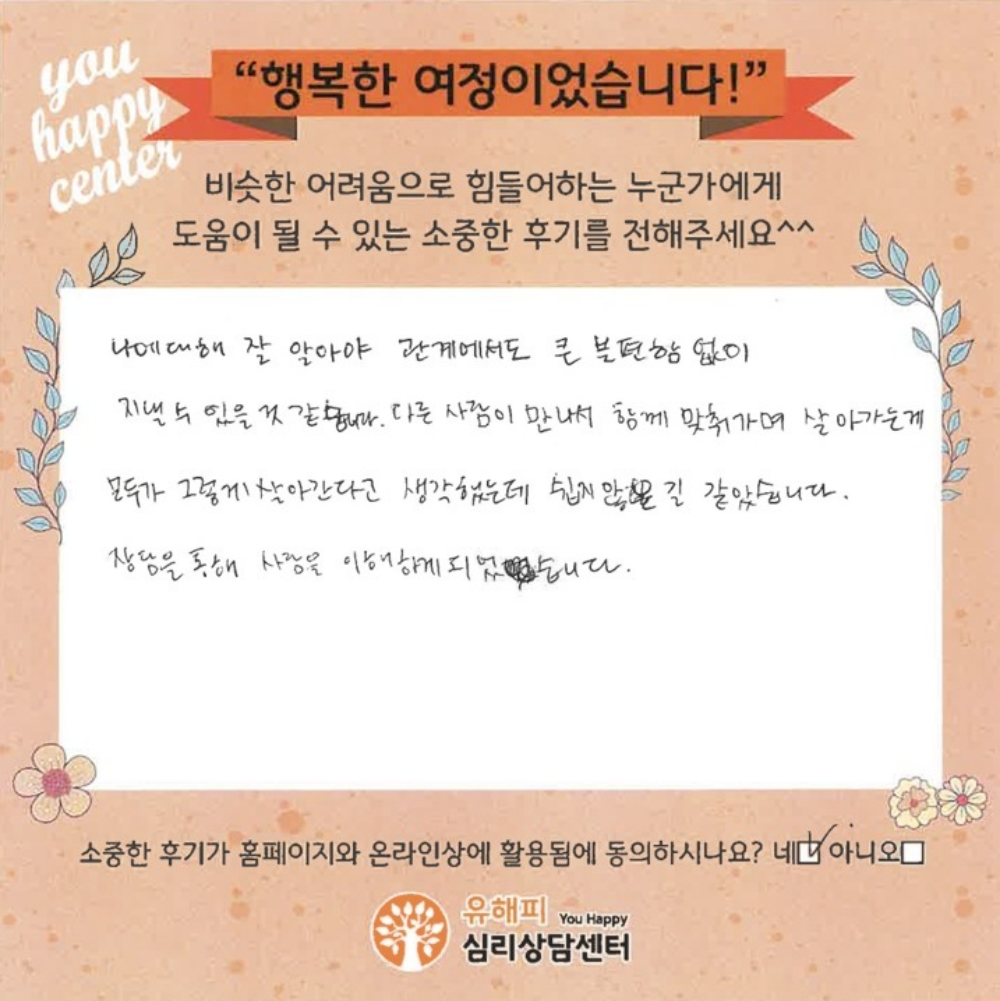 you
happy
center
“행복한 여정이었습니다!”
비슷한 어려움으로 힘들어하는 누군가에게
도움이 될 수 있는 소중한 후기를 전해주세요^^
나에대해 잘 알아야 관계에서도 큰 불편함 없이
지낼 수 있을 것 같습니다. 다른 사람이 만나서 함께 맞춰가며 살아가는게
모두가 그렇게 살아간다고 생각했는데 쉽지 않은 길 같았습니다.
상담을 통해 사람을 이해하게 되었습니다.
소중한 후기가 홈페이지와 온라인상에 활용됨에 동의하시나요? 네☑ 아니오☐
유해피 You Happy
심리상담센터